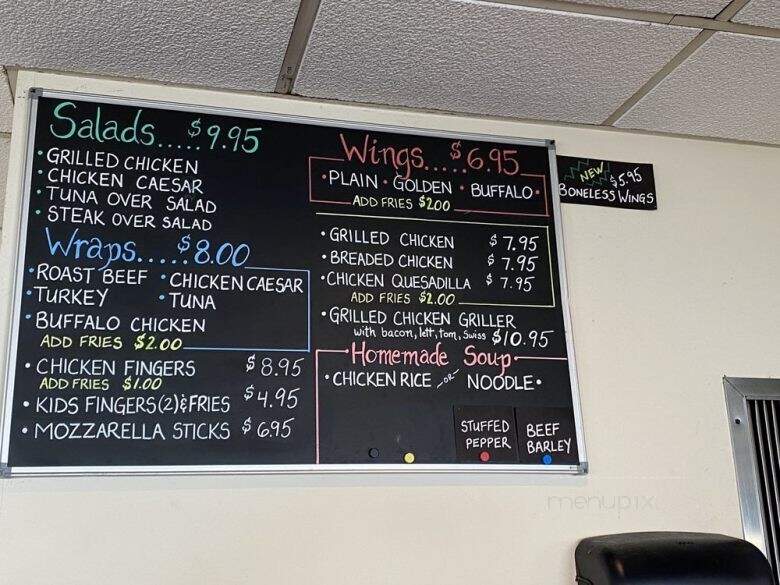 Salads.....$9.95
• GRILLED CHICKEN
• CHICKEN CAESAR
• TUNA OVER SALAD
• STEAK OVER SALAD
Wraps.....$8.00
• ROAST BEEF • CHICKEN CAESAR
• TURKEY • TUNA
• BUFFALO CHICKEN
ADD FRIES $2.00
• CHICKEN FINGERS $8.95
ADD FRIES $1.00
• KIDS FINGERS(2)&FRIES $4.95
• MOZZARELLA STICKS $6.95
Wings.....$6.95
• PLAIN • GOLDEN • BUFFALO •
ADD FRIES $2.00
• GRILLED CHICKEN $7.95
• BREADED CHICKEN $7.95
• CHICKEN QUESADILLA $7.95
ADD FRIES $2.00
• GRILLED CHICKEN GRILLER
with bacon, lett, tom, Swiss $10.95
• Homemade Soup •
• CHICKEN RICE -OR- NOODLE •
STUFFED
PEPPER
BEEF
BARLEY
NEW! $5.95
BONELESS WINGS
menupix